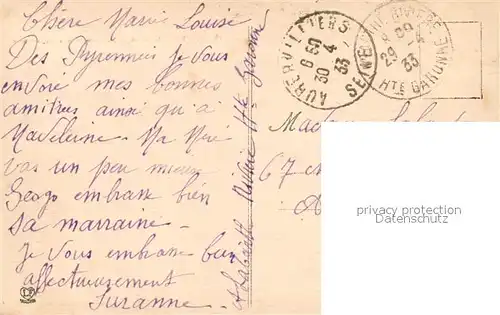 Chère Marie Louise
Des Pyrennées je vous
envoie mes bonnes
amitiées ainsi qu'a
Madeleine - Ma Mère
vas un peu mieux
Geago embrasse bien
sa marraine -
je vous embrasse bien
affectueusement
Suzanne -
Rivière Hte Garonne
AUBERVILLIERS
6 30
30 -4
33
SEINE
RIVIERE
29 -4
33
HTE GARONNE
Madame
67
privacy protection
Datenschutz